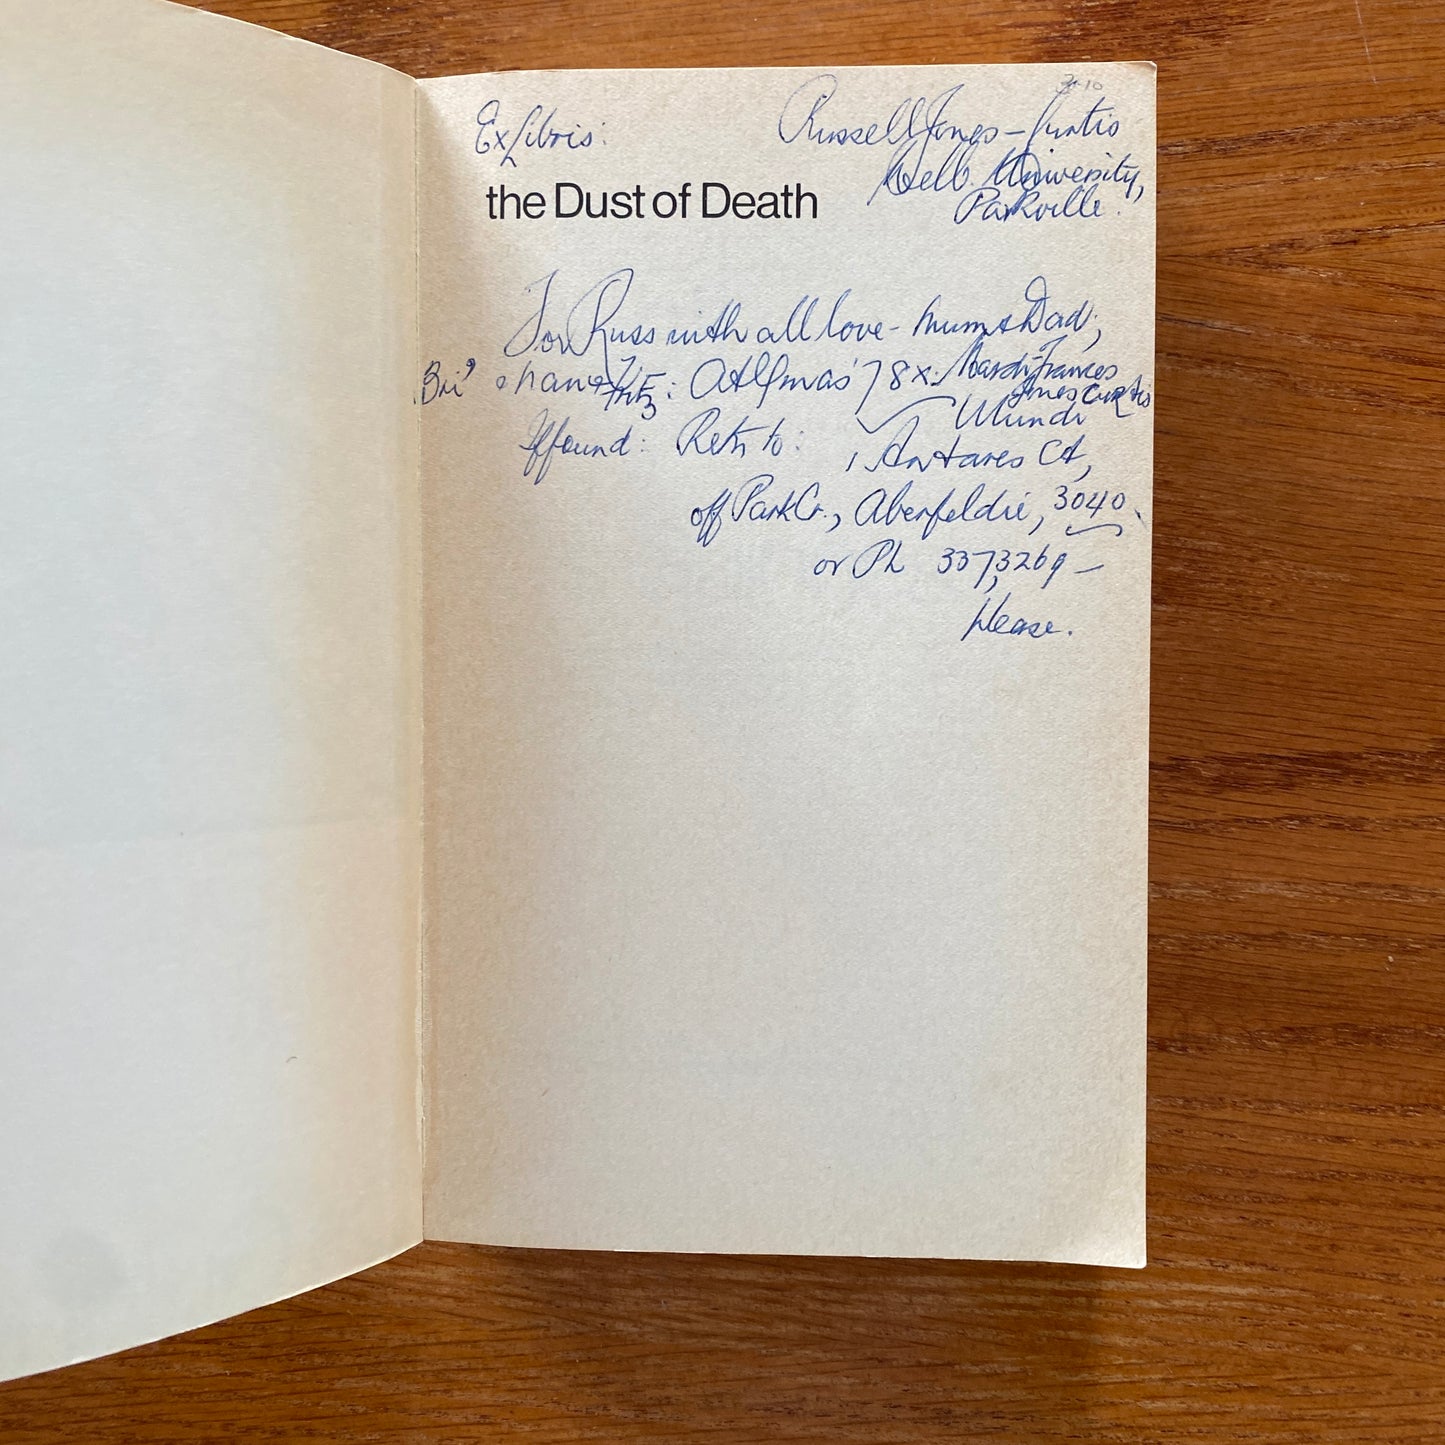 Ex Libris: Russell Jones-Curtis
Melb. University,
the Dust of Death
Parkville.
For Russ with all love - Mum & Dad,
Bri' Fritz: At Xmas '78 x. Mardi-Frances
Jones Curtis
If found: Retn to: Mundi
1 Antares Ct,
off Park Cr., Aberfeldie, 3040
or Ph 337,3269 -
please.